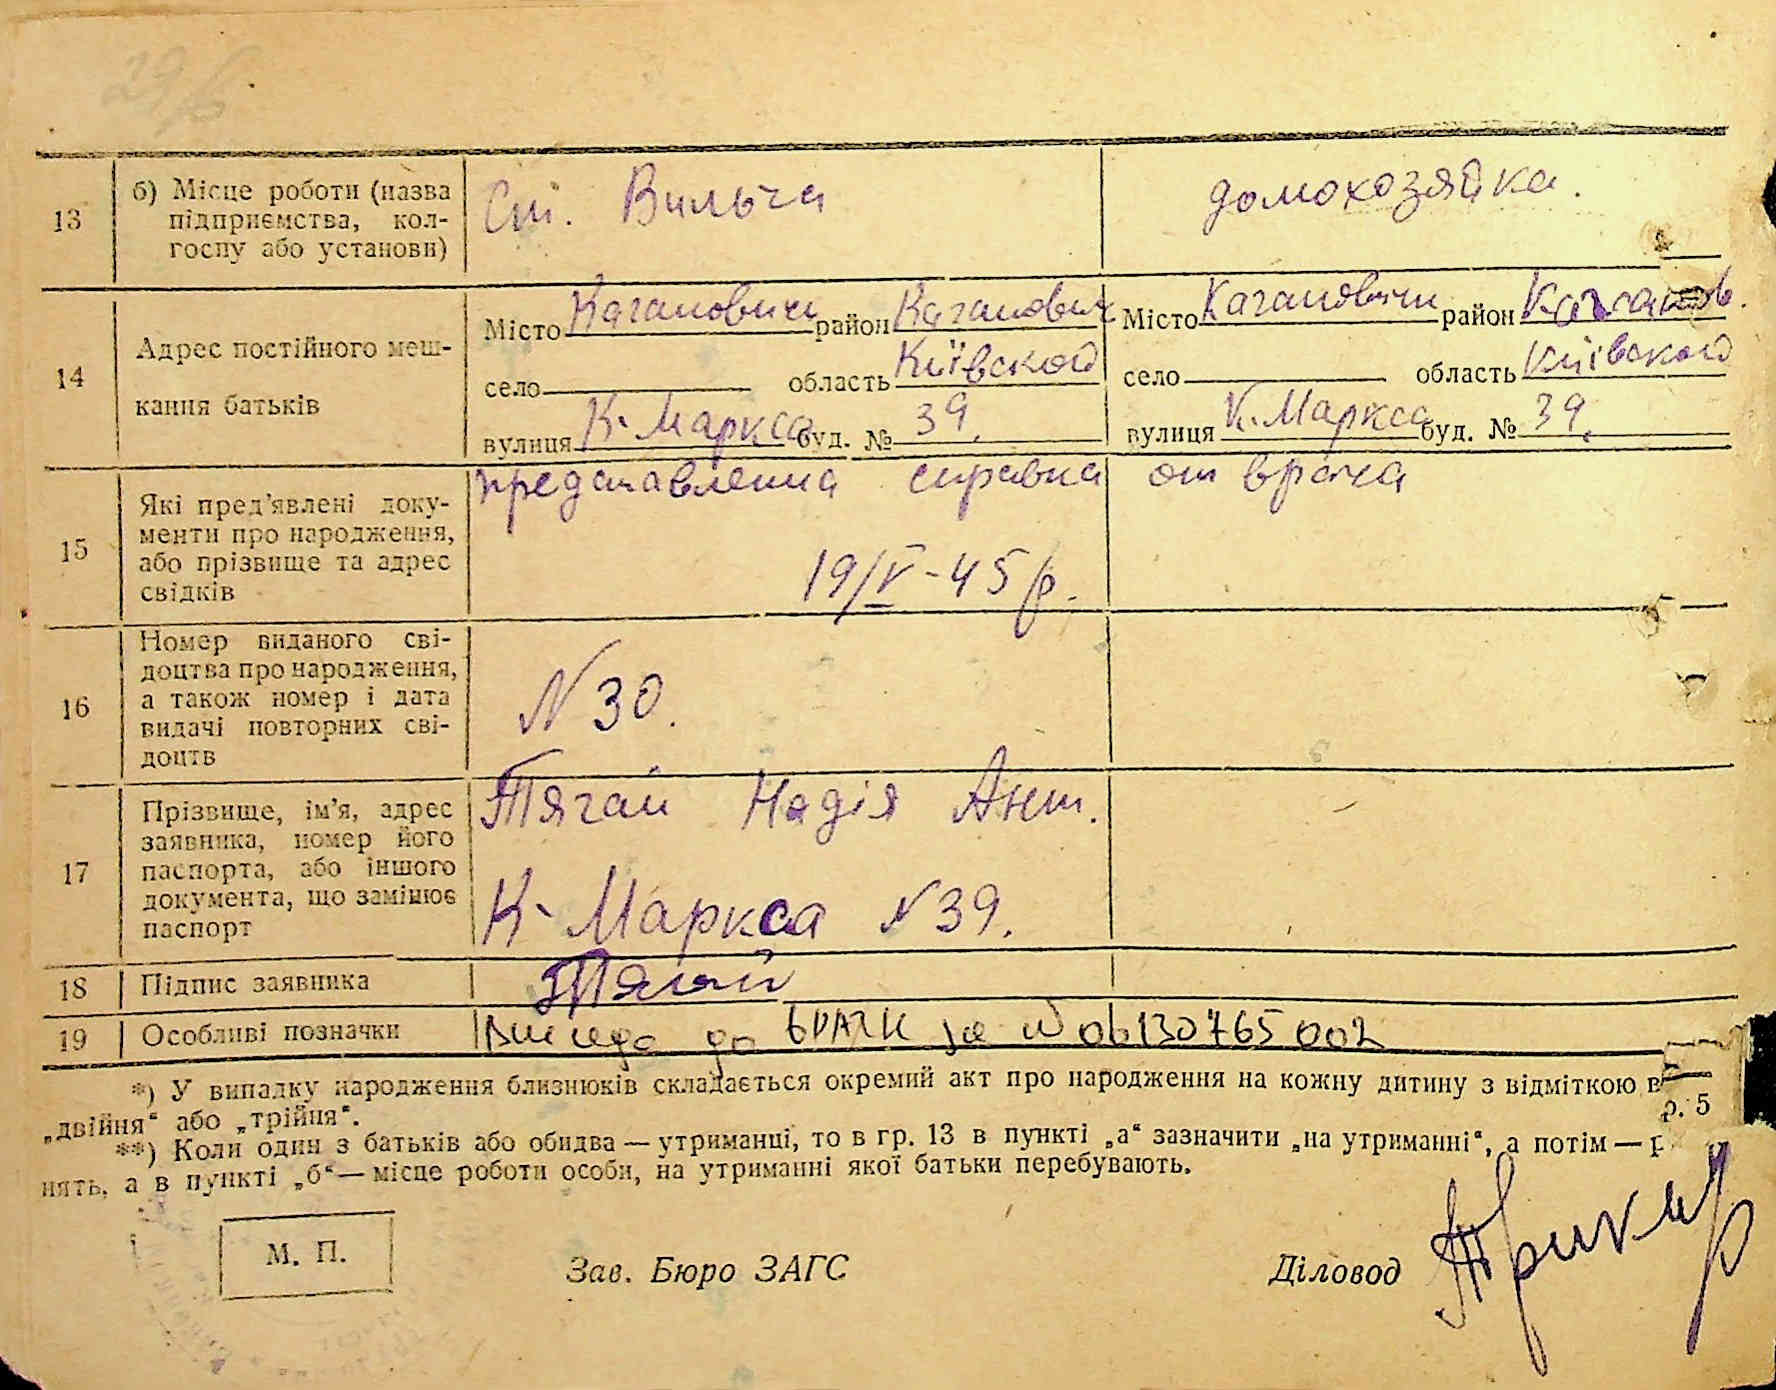 29/6
13
б) Місце роботи (назва
підприємства, кол-
госпу або установи)
Ст. Вильча
домохозяйка.
14
Адрес постійного меш-
кання батьків
Місто Кагановичи район Каганович
село область Київской
вулиця К. Маркса буд. № 39.
Місто Кагановичи район Каганов.
село область Київской
вулиця К. Маркса буд. № 39.
15
Які пред'явлені доку-
менти про народження,
або прізвище та адрес
свідків
представлена справка от врача
19/IV-45 р.
16
Номер виданого сві-
доцтва про народження,
а також номер і дата
видачі повторних сві-
доцтв
N 30.
17
Прізвище, ім'я, адрес
заявника, номер його
паспорта, або іншого
документа, що замінює
паспорт
Тягай Надія Ант.
К. Маркса N 39.
18
Підпис заявника
Тягай
19
Особливі позначки
до за N 06130765002
*) У випадку народження близнюків складається окремий акт про народження на кожну дитину з відміткою в
р. 5
„двійня“ або „трійня“.
**) Коли один з батьків або обидва — утриманці, то в гр. 13 в пункті „а“ зазначити „на утриманні“, а потім —
нять, а в пункті „б“ — місце роботи особи, на утриманні якої батьки перебувають.
М. П.
Зав. Бюро ЗАГС
Діловод